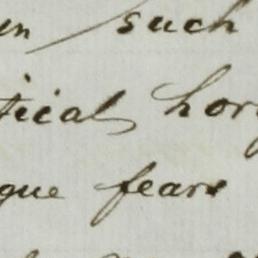 en such
tical hor
gue fears